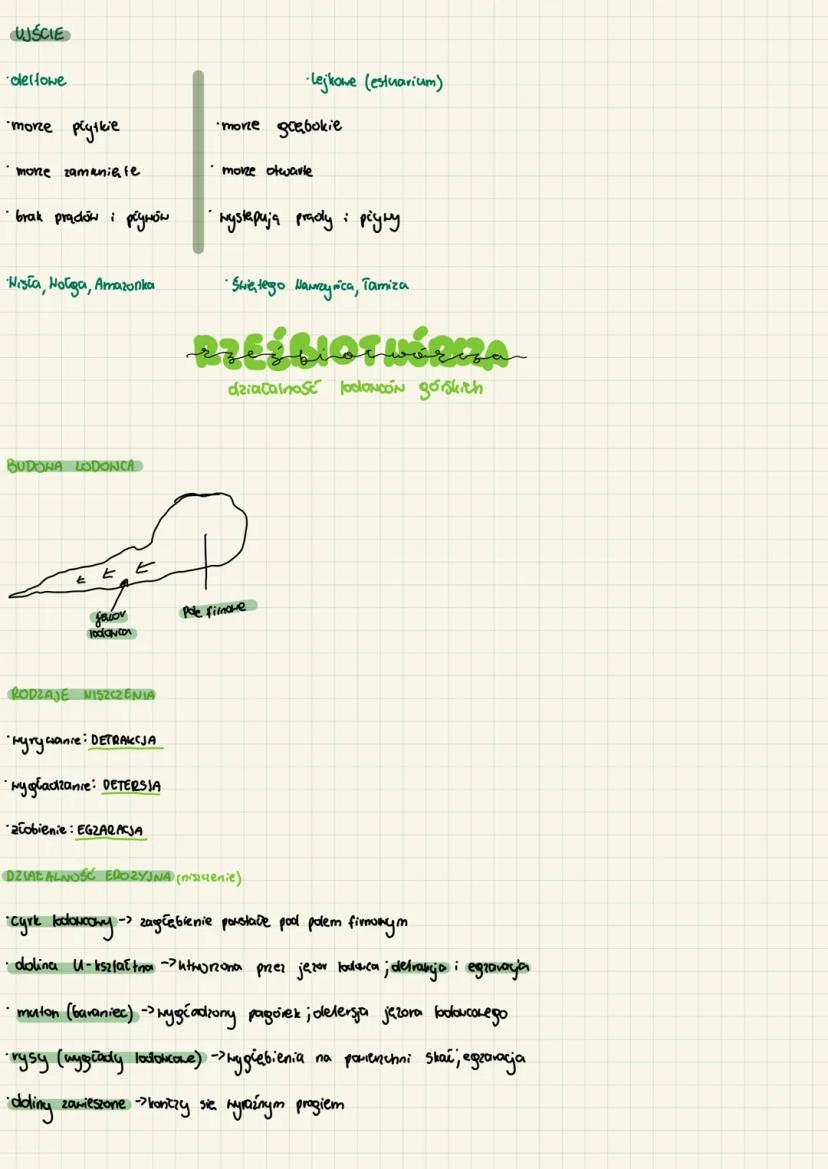 UJŚCIE
·deltowe
·lejkowe (estuarium)
·morze płytkie
·morze głębokie
·morze zamknięte
·morze otwarte
·brak prądów i pływów
·występują prądy i pływy
·Wisła, Wołga, Amazonka
·Świętego Wawrzyńca, Tamiza
RZEŹBIOTWÓRCZA
rzeźbiotwórcza
działalność lodowców górskich
BUDOWA LODOWCA
jęzor
lodowca
pole firnowe
RODZAJE NISZCZENIA
·wyrywanie: DETRAKCJA
·wygładzanie: DETERSJA
·żłobienie: EGZARACJA
DZIAŁALNOŚĆ EROZYJNA (niszczenie)
·cyrk lodowcowy -> zagłębienie powstałe pod polem firnowym
·dolina U-kształtna -> utworzona przez jęzor lodowca; detrakcja i egzaracja
·muton (baraniec) -> wygładzony pagórek; detersja jęzora lodowcowego
·rysy (wygłady lodowcowe) -> wgłębienia na powierzchni skał; egzaracja
·doliny zawieszone -> kończy się wyraźnym progiem